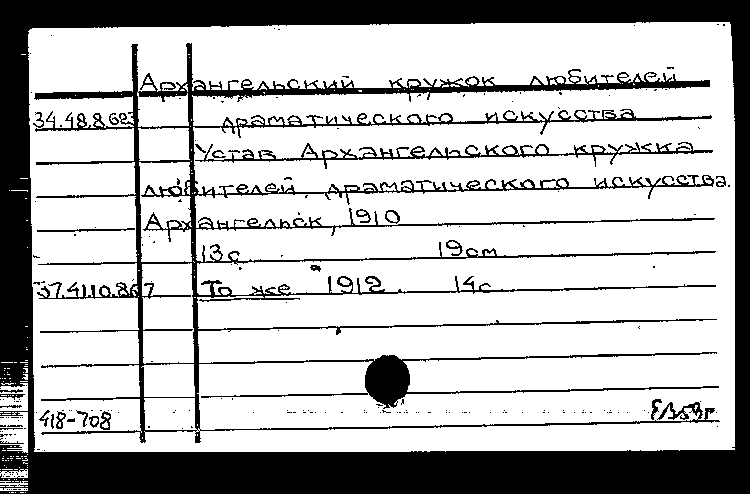 Архангельский кружок любителей
34.48.8.683 драматического искусства
Устав Архангельского кружка
любителей драматического искусства.
Архангельск, 1910
13с 19см
37.41.10.867 То же 1912. 14с
418-708